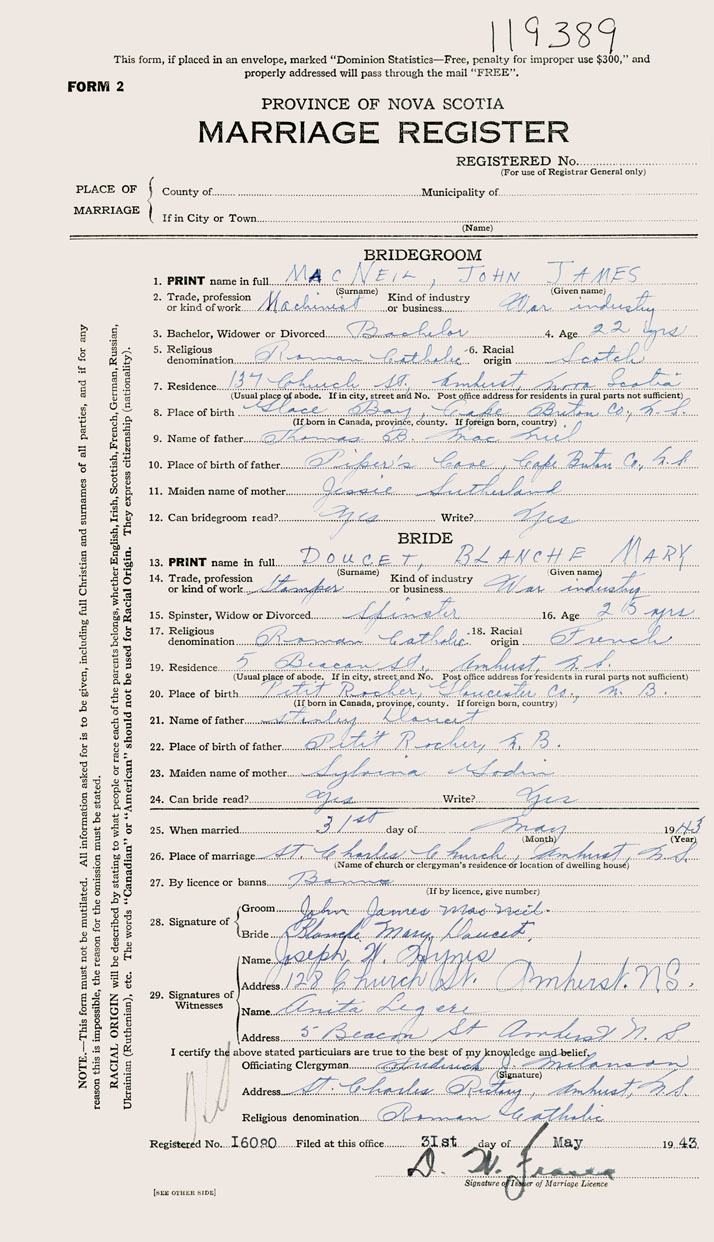 119389
This form, if placed in an envelope, marked "Dominion Statistics—Free, penalty for improper use $300," and
properly addressed will pass through the mail "FREE".
FORM 2
PROVINCE OF NOVA SCOTIA
MARRIAGE REGISTER
REGISTERED No.
(For use of Registrar General only)
PLACE OF MARRIAGE
County of Municipality of
If in City or Town
(Name)
BRIDEGROOM
1. PRINT name in full MAC NEIL, JOHN JAMES
(Surname) (Given name)
2. Trade, profession or kind of work Machinist Kind of industry or business War industry
3. Bachelor, Widower or Divorced Bachelor 4. Age 22 yrs
5. Religious denomination Roman Catholic 6. Racial origin Scotch
7. Residence 137 Church St. Amherst, Nova Scotia
(Usual place of abode. If in city, street and No. Post office address for residents in rural parts not sufficient)
8. Place of birth Glace Bay, Cape Breton Co., N.S.
(If born in Canada, province, county. If foreign born, country)
9. Name of father Thomas B. Mac Neil
10. Place of birth of father Piper's Cove, Cape Breton Co., N.S
11. Maiden name of mother Jessie Sutherland
12. Can bridegroom read? Yes Write? Yes
BRIDE
13. PRINT name in full DOUCET, BLANCHE MARY
(Surname) (Given name)
14. Trade, profession or kind of work Stamper Kind of industry or business War industry
15. Spinster, Widow or Divorced Spinster 16. Age 25 yrs
17. Religious denomination Roman Catholic 18. Racial origin French
19. Residence 5 Beacon St., Amherst, N.S.
(Usual place of abode. If in city, street and No. Post office address for residents in rural parts not sufficient)
20. Place of birth Petit Rocher, Gloucester Co., N.B.
(If born in Canada, province, county. If foreign born, country)
21. Name of father Stanley Doucet
22. Place of birth of father Petit Rocher, N.B.
23. Maiden name of mother Sylvina Godin
24. Can bride read? Yes Write? Yes
25. When married 31st day of May 1943
(Month) (Year)
26. Place of marriage St. Charles Church, Amherst, N.S.
(Name of church or clergyman's residence or location of dwelling house)
27. By licence or banns Banns
(If by licence, give number)
28. Signature of
Groom John James MacNeil.
Bride Blanche Mary Doucet,
29. Signatures of Witnesses
Name Joseph W. Hynes
Address 128 Church St. Amherst. NS.
Name Anita Legere
Address 5 Beacon St Amherst N.S
I certify the above stated particulars are true to the best of my knowledge and belief.
Officiating Clergyman Frederick J. Melanson
(Signature)
Address St. Charles Rectory, Amherst, N.S.
Religious denomination Roman Catholic
Registered No. 16090 Filed at this office 31st day of May 1943.
D. W. Fraser
Signature of Issuer of Marriage Licence
[SEE OTHER SIDE]
NOTE.—This form must not be mutilated. All information asked for is to be given, including full Christian and surnames of all parties, and if for any
reason this is impossible, the reason for the omission must be stated.
RACIAL ORIGIN will be described by stating to what people or race each of the parents belongs, whether English, Irish, Scottish, French, German, Russian,
Ukrainian (Ruthenian), etc. The words "Canadian" or "American" should not be used for Racial Origin. They express citizenship (nationality).